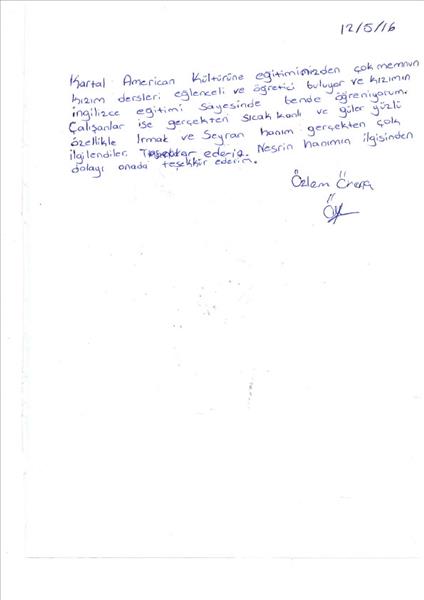 12/5/16
Kartal American Kültürüne eğitiminizden çok memnun
kızım dersleri eğlenceli ve öğretici buluyor ve kızımın
ingilizce eğitimi sayesinde bende öğreniyorum.
Çalışanlar ise gerçekten sıcak kanlı ve güler yüzlü
özellikle Irmak ve Seyran hanım gerçekten çok
ilgilendiler. ederiz. Nesrin hanımın ilgisinden
dolayı onada teşekkür ederim.
Özlem